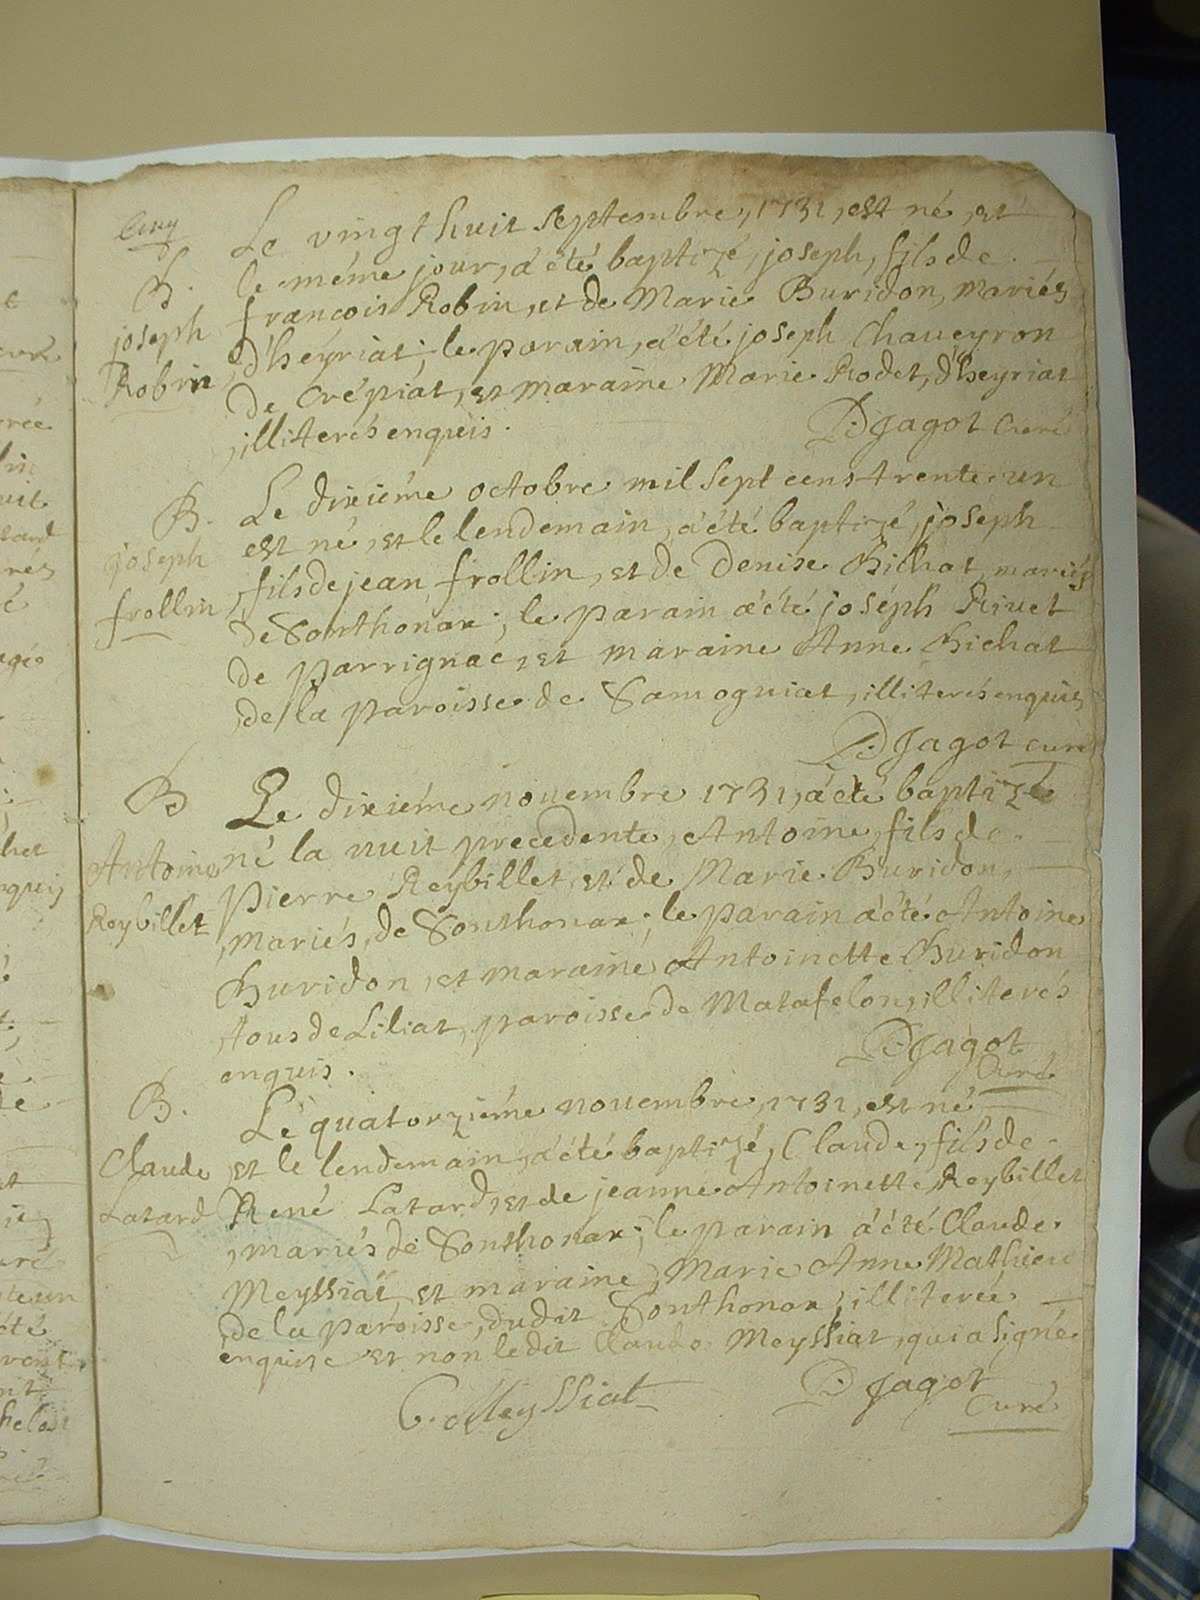 B.
joseph
Robin
Le vingt huit Septembre, 1731, est né, et
le méme jour, a été baptizé, joseph, fils de
françois Robin, et de Marie Buridon, mariés
d'heyriat; le parain, a été joseph Chaueyron
de Crépiat, et maraine Marie Rodet, d'heyriat
illiterés enquis.
D. Jagot Curé
B.
joseph
frollin
Le dixiéme octobre mil Sept cens trente un
est né, et le lendemain, a été baptizé, joseph
fils de jean frollin, et de Denise Bichat, mariés
de Sonthonax; le parain a été joséph Rivet
de parrignac, et maraine Anne Bichat
de la paroisse de Samogniat, illiterés enquis
D. Jagot curé
B
Antoine
Reybillet
Le dixiéme novembre 1731, a été baptizé
né la nuit precedente, Antoine, fils de
Pierre Reybillet, et de Marie Buridon,
mariés, de Sonthonax; le parain a été Antoine
Buridon, et maraine Antoinette Buridon
tous de Liliat, paroisse de Matafelon, illiterés
enquis.
D. Jagot
Curé
B.
Claude
Latard
Le quatorziéme novembre, 1731, est né
et le lendemain, a été baptizé, Claude, fils de
René Latard, et de jeanne Antoinette Reybillet
mariés de Sonthonax; le parain a été Claude
Meyssiat, et maraine, Marie Anne Mathieu
de la paroisse, dudit Sonthonax, illiterée
enquise et non ledit Claude Meyssiat, qui a signé
C. Meyssiat
D. Jagot
Curé